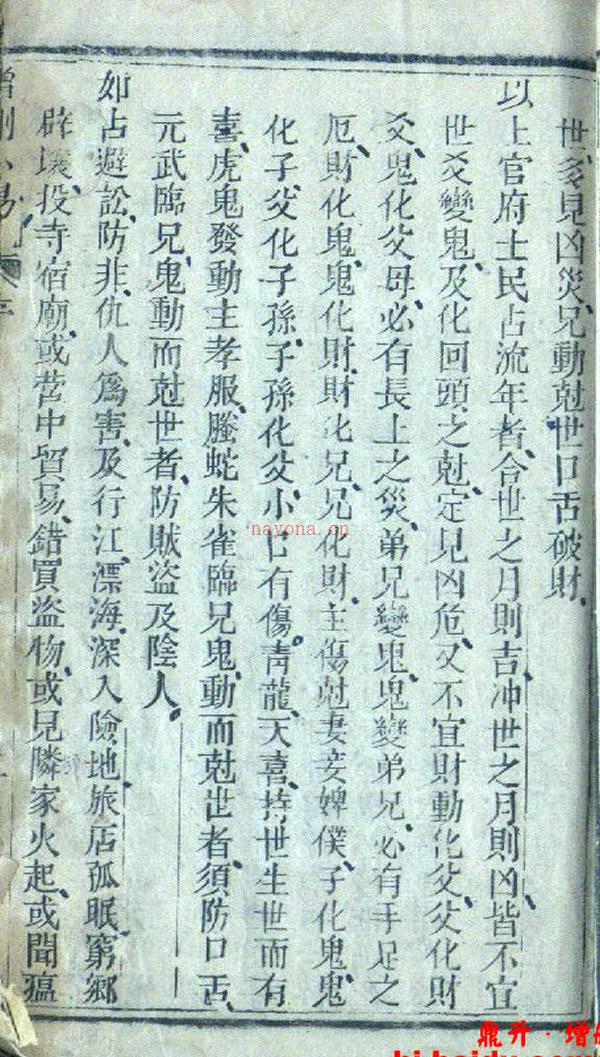 世多見凶災兄動尅世口舌破財
以上官府士民占流年者合世之月則吉冲世之月則凶皆不宜
世爻變鬼及化回頭之尅定見凶危又不宜財動化父父化財
爻鬼化父母必有長上之災弟兄變鬼鬼變弟兄必有手足之
厄財化鬼鬼化財財化兄兄化財主傷尅妻妾婢僕子化鬼鬼
化子父化子孫子孫化父小口有傷青龍天喜持世生世而有
喜虎鬼發動主孝服螣蛇朱雀臨兄鬼動而尅世者須防口舌
元武臨兄鬼動而尅世者防賊盜及陰人
如占避訟防非仇人爲害及行江漂海深入險地旅店孤眠窮鄉
僻壤投寺宿廟或營中貿易錯買盜物或見隣家火起或聞瘟
增刪卜易
nayona.cn
鼎升·增